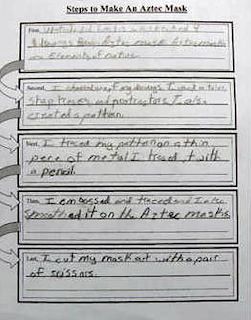 Steps to Make An Aztec Mask
First,
Aztec mask
an Element of nature.
Second, I
of my drawings. I used a ruler,
shap tracer, and protractors I also
created a pattern.
Next, I traced my pattern on a thin
peice of metal I traced it with
a pencil.
Then, I embossed and traced and I also
smoothed it on the Aztec masks.
Last, I cut my mask out with a pair
of scissors.